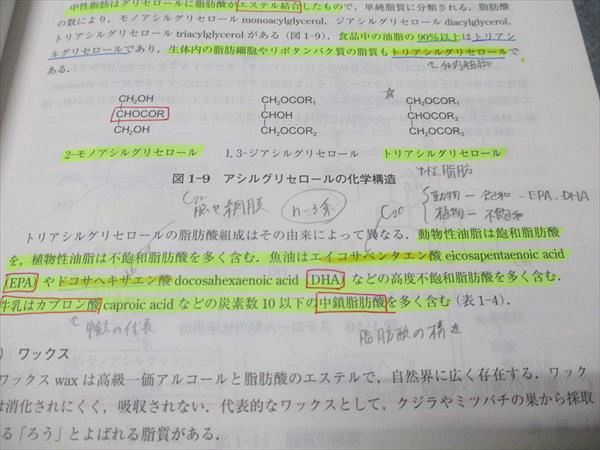 中性脂肪はグリセロールに脂肪酸がエステル結合したもので，単純脂質に分類される．脂肪酸
の数により，モノアシルグリセロール monoacylglycerol，ジアシルグリセロール diacylglycerol，
トリアシルグリセロール triacylglycerol がある（図 1-9）．食品中の油脂の 90%以上はトリアシ
ルグリセロールであり，生体内の脂肪細胞やリポタンパク質の脂質もトリアシルグリセロールで
ある．
CH₂OH
CHOCOR
CH₂OH
2-モノアシルグリセロール
CH₂OCOR₁
CHOH
CH₂OCOR₂
1, 3-ジアシルグリセロール
☆
CH₂OCOR₁
CHOCOR₂
CH₂OCOR₃
トリアシルグリセロール
図 1-9 アシルグリセロールの化学構造
中性脂肪
動物 — 飽和 — EPA．DHA
植物 — 不飽和
C₂₂
脳や網膜
n-3系
C₂₀
トリアシルグリセロールの脂肪酸組成はその由来によって異なる．動物性油脂は飽和脂肪酸
を，植物性油脂は不飽和脂肪酸を多く含む．魚油はエイコサペンタエン酸 eicosapentaenoic acid
(EPA) やドコサヘキサエン酸 docosahexaenoic acid (DHA) などの高度不飽和脂肪酸を多く含む．
牛乳はカプロン酸 caproic acid などの炭素数 10 以下の中鎖脂肪酸を多く含む（表 1-4）．
中鎖の代表
脂肪酸の構造
) ワックス
ワックス wax は高級一価アルコールと脂肪酸のエステルで，自然界に広く存在する．ワック
は消化されにくく，吸収されない．代表的なワックスとして，クジラやミツバチの巣から採取
る「ろう」とよばれる脂質がある．